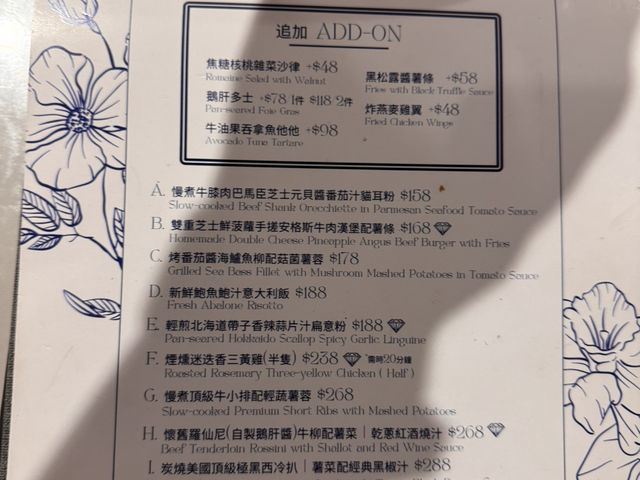 追加 ADD-ON
焦糖核桃雜菜沙律 +$48
Romaine Salad with Walnut
鵝肝多士 +$78/1件 $118/2件
Pan-seared Foie Gras
牛油果吞拿魚他他 +$98
Avocado Tuna Tartare
黑松露醬薯條 +$58
Fries with Black Truffle Sauce
炸燕麥雞翼 +$48
Fried Chicken Wings
A. 慢煮牛膝肉巴馬臣芝士元貝醬番茄汁貓耳粉 $158
Slow-cooked Beef Shank Orecchiette in Parmesan Seafood Tomato Sauce
B. 雙重芝士鮮菠蘿手搓安格斯牛肉漢堡配薯條 $168
Homemade Double Cheese Pineapple Angus Beef Burger with Fries
C. 烤番茄醬海鱸魚柳配菇菌薯蓉 $178
Grilled Sea Bass Fillet with Mushroom Mashed Potatoes in Tomato Sauce
D. 新鮮鮑魚鮑汁意大利飯 $188
Fresh Abalone Risotto
E. 輕煎北海道帶子香辣蒜片汁扁意粉 $188
Pan-seared Hokkaido Scallop Spicy Garlic Linguine
F. 煙燻迷迭香三黃雞(半隻) $238 需時20分鐘
Roasted Rosemary Three-yellow Chicken ( Half )
G. 慢煮頂級牛小排配輕蔬薯蓉 $268
Slow-cooked Premium Short Ribs with Mashed Potatoes
H. 懷舊羅仙尼(自製鵝肝醬)牛柳配薯菜 | 乾蔥紅酒燒汁 $268
Beef Tenderloin Rossini with Shallot and Red Wine Sauce
I. 炭燒美國頂級極黑西冷扒 | 薯菜配經典黑椒汁 $288